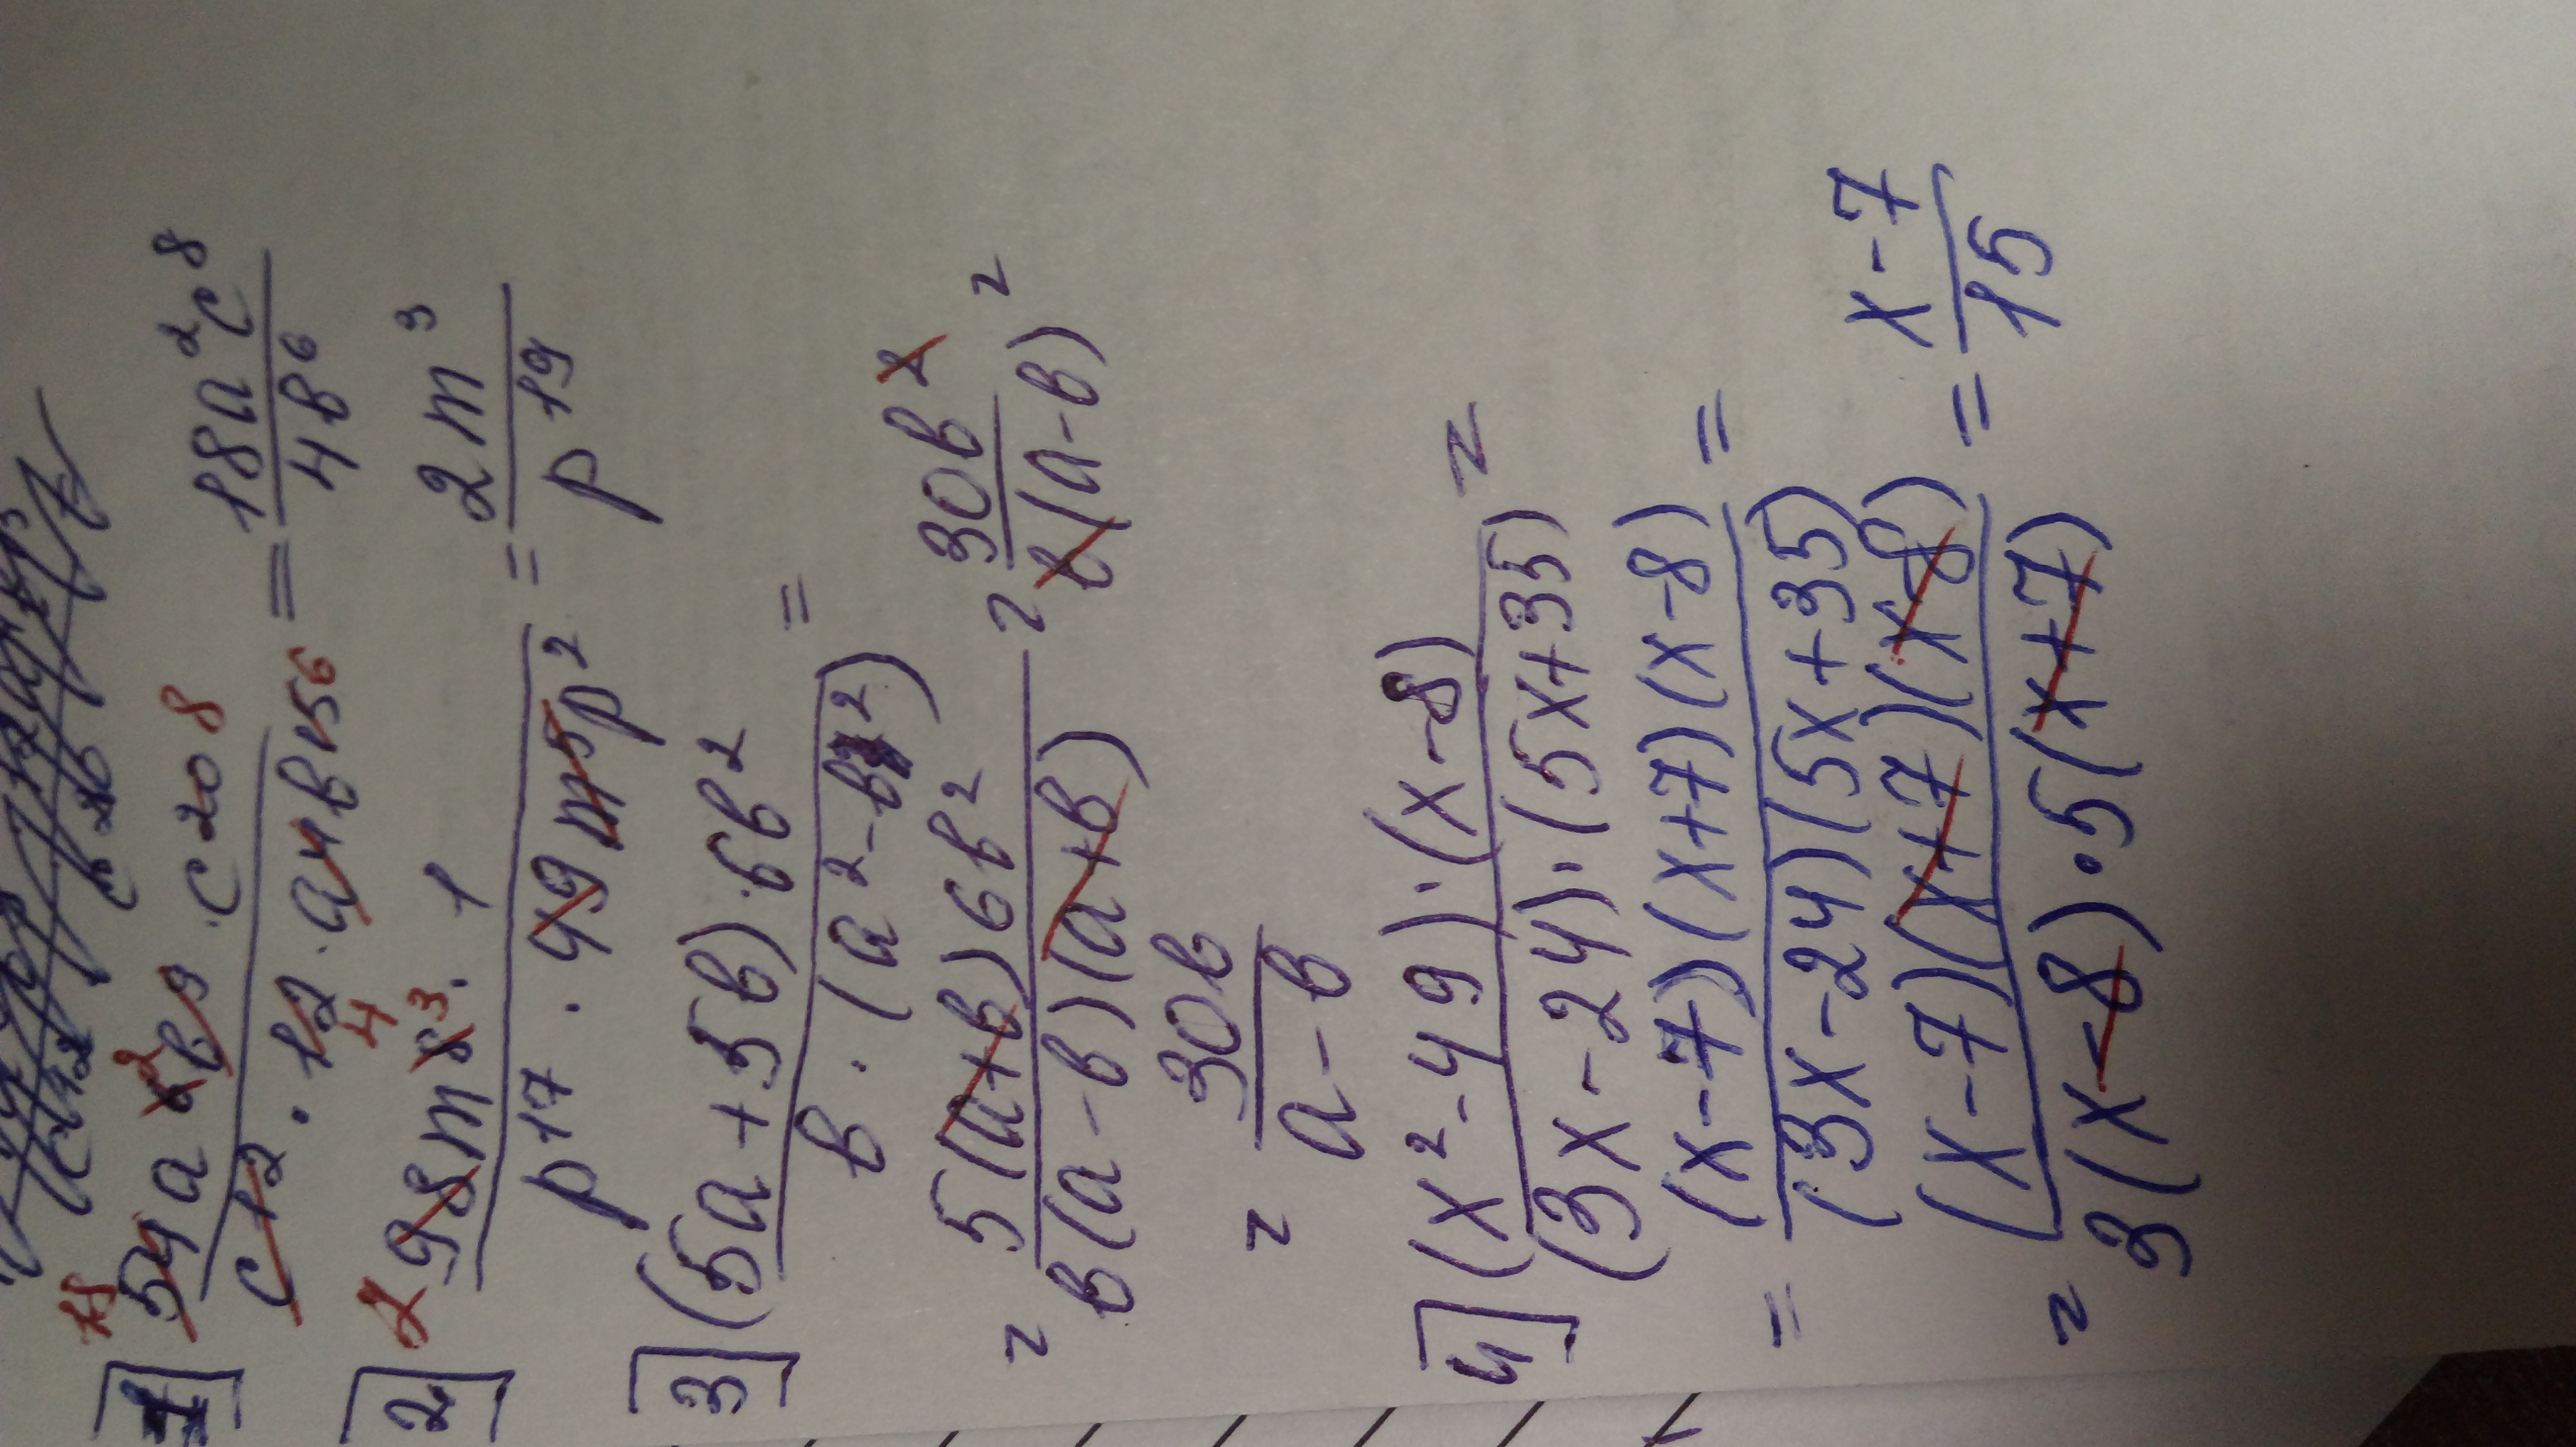 1] 18 54a⁶ ² b⁹ · c²⁰ ⁸
c¹² · 12 4 · a⁴ b¹⁵ ⁶ = 18a²c⁸ / 4b⁶
2] 2 98m⁸ ³ · 1 / p¹⁷ · 49m⁵p² = 2m³ / p¹⁹
3] (5a+5b)·6b² / b·(a²-b²) =
= 5(a+b)6b² / b(a-b)(a+b) = 30b² / b(a-b) =
= 30b / a-b
4] (x²-49)·(x-8) / (3x-24)·(5x+35) =
= (x-7)(x+7)(x-8) / (3x-24)(5x+35) =
= (x-7)(x+7)(x-8) / 3(x-8)·5(x+7) = x-7 / 15